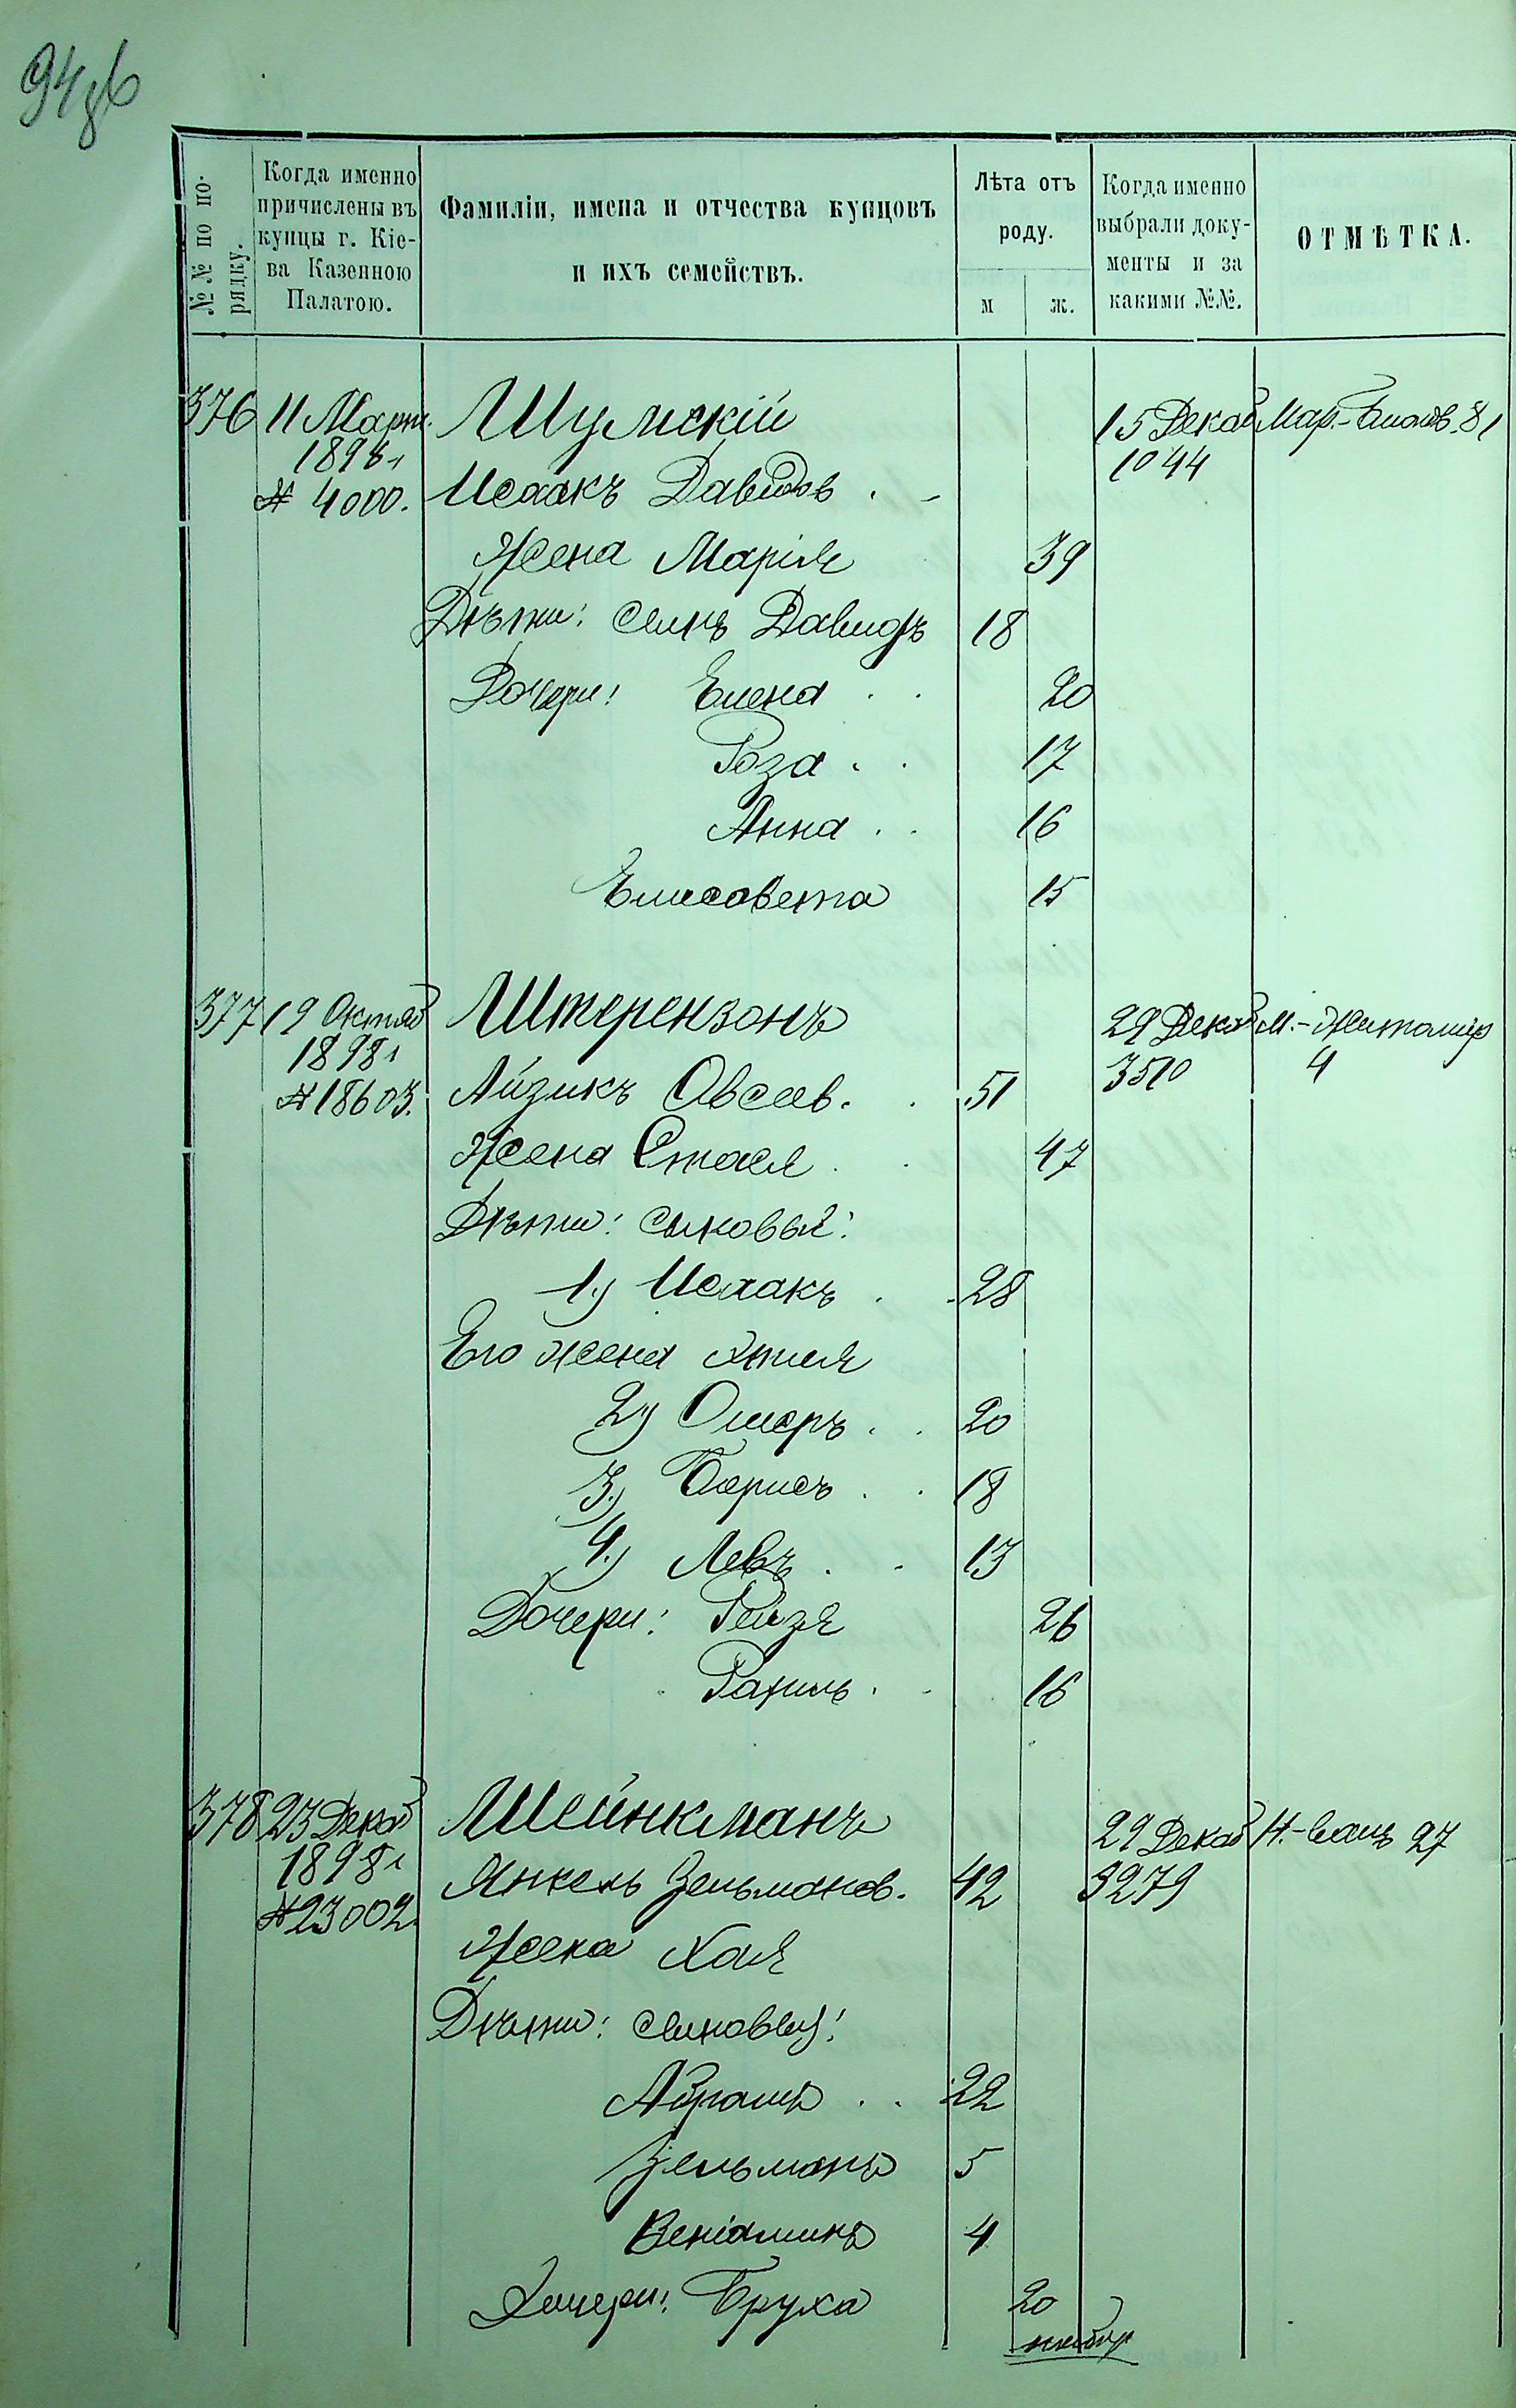 94об
№№ по по-
рядку.
Когда именно
причислены въ
купцы г. Кіе-
ва Казенною
Палатою.
Фамиліи, имена и отчества купцовъ
и ихъ семействъ.
Лѣта отъ
роду.
м ж.
Когда именно
выбрали доку-
менты и за
какими №№.
ОТМѢТКА.
376 11 Марта Шумскій 15 Декаб Мар.-Благов. 81
1898 г 1044
№ 4000. Исаакъ Давидов.
Жена Марія 39
Дѣти: сынъ Давидъ 18
Дочери: Елена 20
Роза 17
Анна 16
Елисовета 15
377 19 Октяб Штерензонъ 29 Декаб М.-Житомир
1898 г 3510 4
№ 18603. Айзикъ Овсеев. 51
Жена Стася 47
Дѣти: сыновья:
1) Исаакъ 28
Его жена
2) Ошеръ 20
3) Борисъ 18
4) Левъ 13
Дочери: Рейзя 26
Рахиль 16
378 23 Декаб Шейнкманъ 29 Декаб Н.-Валъ 27
1898 г 3279
№ 23002 Янкель Зельманов. 42
Жена Хая
Дѣти: сыновья:
Абрамъ 22
Зельманъ 5
Веніаминъ 4
Дочери: Бруха 20